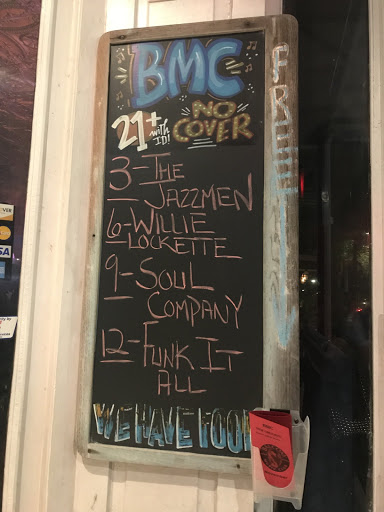 BMC
NO
21+ with ID! COVER
3-THE
JAZZMEN
6-WILLIE
LOCKETTE
9-SOUL
COMPANY
12-FUNK IT
ALL
WE HAVE FOOD
FREE
VISA